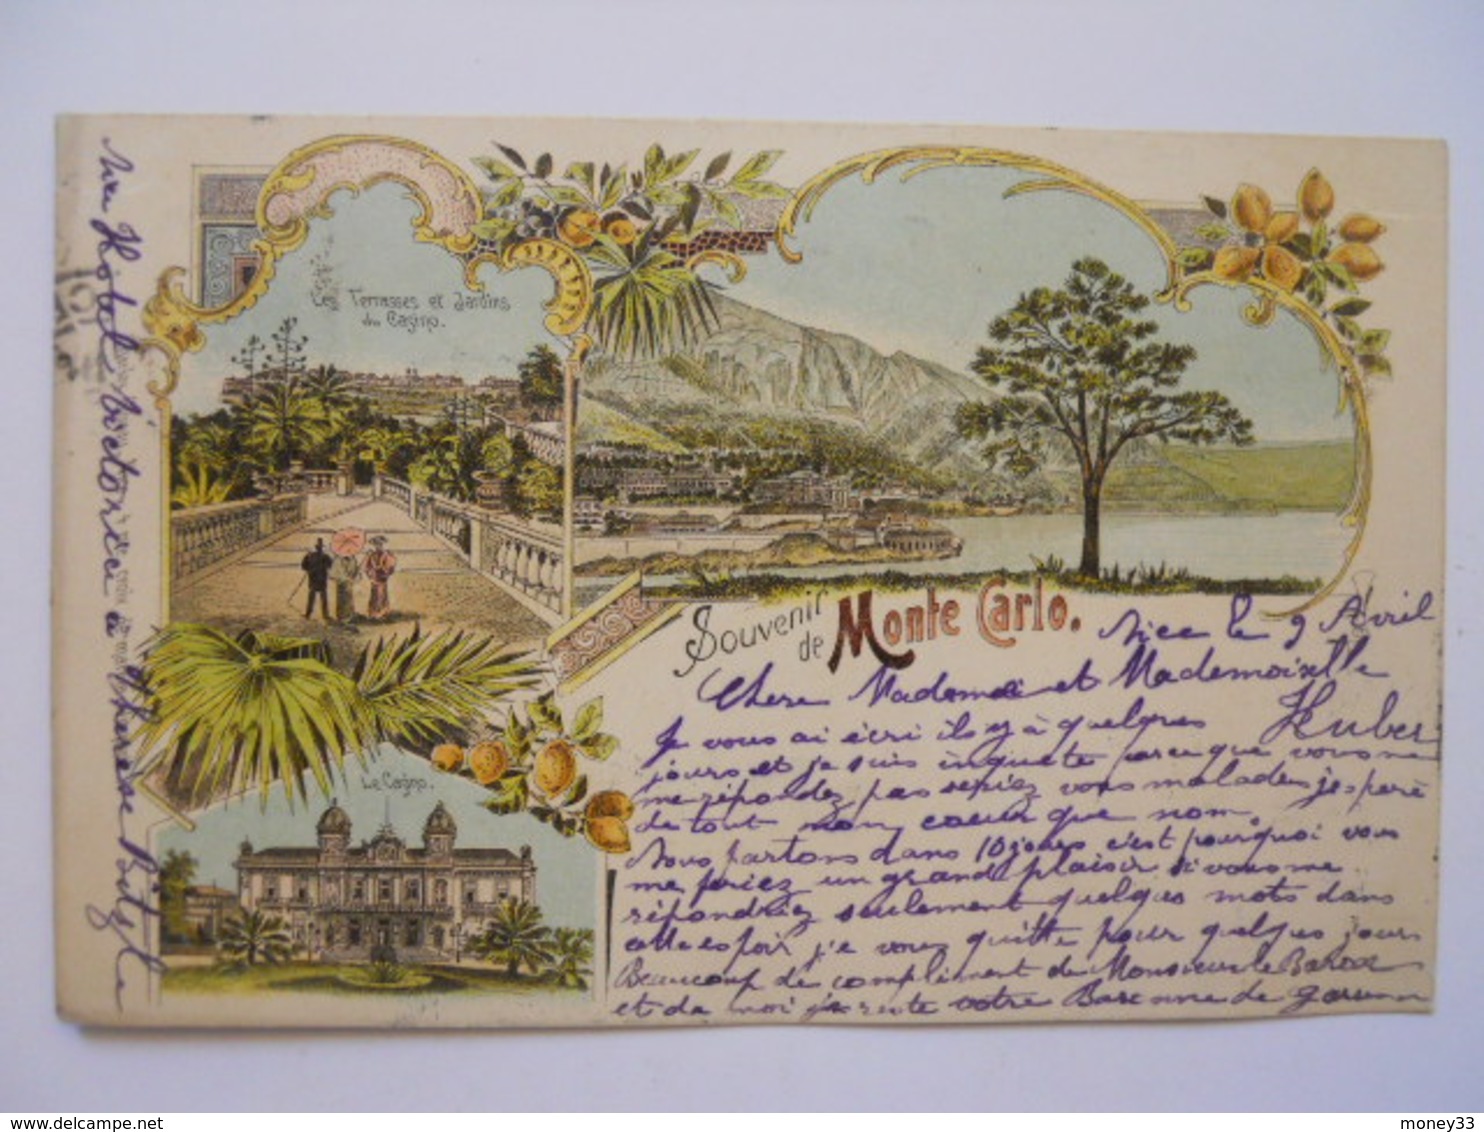 Les Terrasses et Jardins
du Casino.
Souvenir
de Monte Carlo.
Le Casino.
Nice le 9 Avril
Chere Madame et Mademoiselle
Huber
Je vous ai écri il y à quelques
jours et je suis inquete parce que vous ne
me répondez pas seriez vous malades j'esperè
de tout mon coeur que nom.
Nous partons dans 10 jours c'est pourquoi vous
me feriez un grand plaisir si vous me
répondriez seulement quelques mots dans
cette espoir je vous quitte pour quelques jours
Beaucoup de compliment de Monsieur le Baron
et de moi je reste votre Baronne de
Hotel Victoria à Therese
money33
delcampe.net